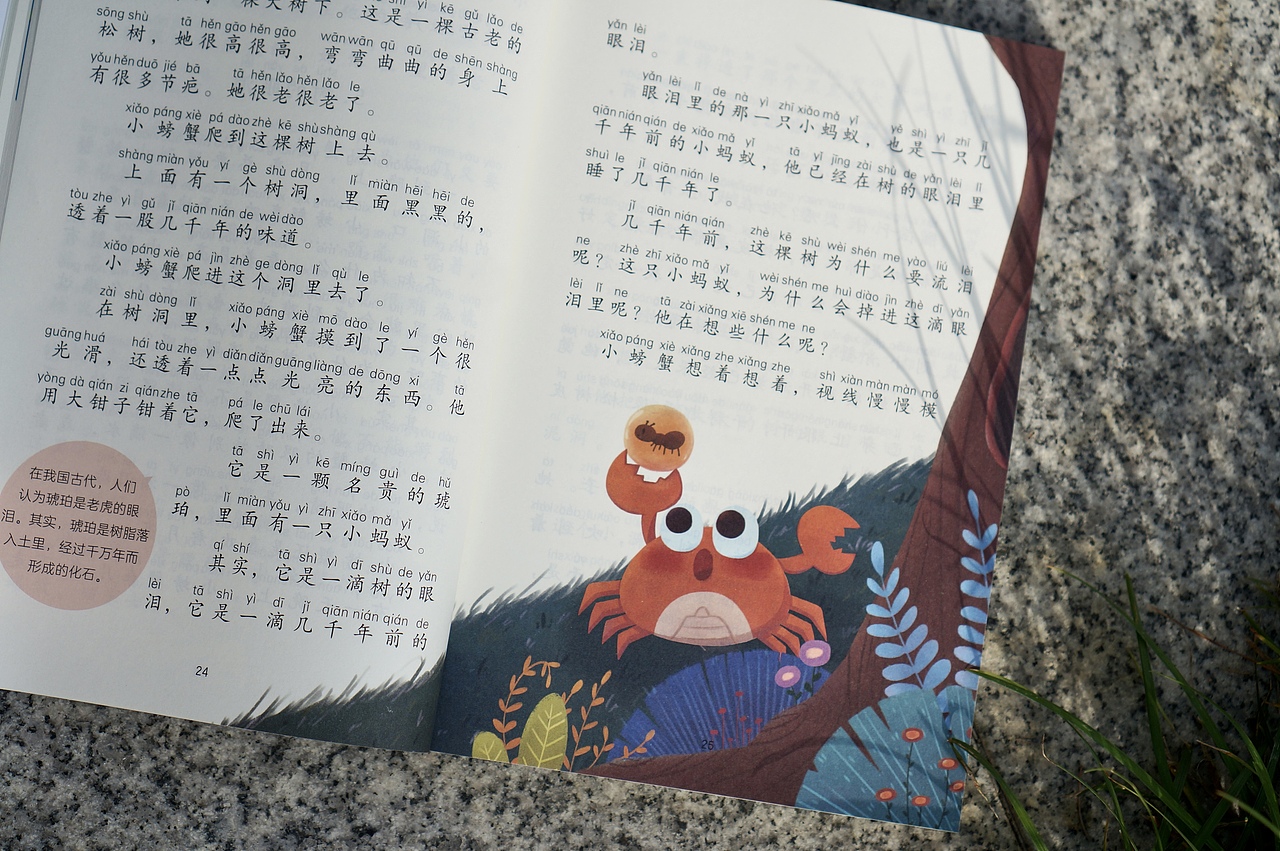 shì yì kē gǔ lǎo de
棵大树下。这是一棵古老的
sōng shù tā hěn gāo hěn gāo wān wān qū qū de shēn shàng
松树，她很高很高，弯弯曲曲的身上
yǒu hěn duō jié bā tā hěn lǎo hěn lǎo le
有很多节疤。她很老很老了。
xiǎo páng xiè pá dào zhè kē shù shàng qù
小螃蟹爬到这棵树上去。
shàng miàn yǒu yí gè shù dòng lǐ miàn hēi hēi de
上面有一个树洞，里面黑黑的，
tòu zhe yì gǔ jǐ qiān nián de wèi dào
透着一股几千年的味道。
xiǎo páng xiè pá jìn zhè ge dòng lǐ qù le
小螃蟹爬进这个洞里去了。
zài shù dòng lǐ xiǎo páng xiè mō dào le yí gè hěn
在树洞里，小螃蟹摸到了一个很
guāng huá hái tòu zhe yì diǎn diǎn guāng liàng de dōng xi tā
光滑，还透着一点点光亮的东西。他
yòng dà qián zi qián zhe tā pá le chū lái
用大钳子钳着它，爬了出来。
tā shì yì kē míng guì de hǔ
它是一颗名贵的琥
pò lǐ miàn yǒu yì zhī xiǎo mǎ yǐ
珀，里面有一只小蚂蚁。
qí shí tā shì yì dī shù de yǎn
其实，它是一滴树的眼
lèi tā shì yì dī jǐ qiān nián qián de
泪，它是一滴几千年前的
在我国古代，人们
认为琥珀是老虎的眼
泪。其实，琥珀是树脂落
入土里，经过千万年而
形成的化石。
24
yǎn lèi
眼泪。
yǎn lèi lǐ de nà yì zhī xiǎo mǎ yǐ yě shì yì zhī jǐ
眼泪里的那一只小蚂蚁，也是一只几
qiān nián qián de xiǎo mǎ yǐ tā yǐ jīng zài shù de yǎn lèi lǐ
千年前的小蚂蚁，他已经在树的眼泪里
shuì le jǐ qiān nián le
睡了几千年了。
jǐ qiān nián qián zhè kē shù wèi shén me yào liú lèi
几千年前，这棵树为什么要流泪
ne zhè zhī xiǎo mǎ yǐ wèi shén me huì diào jìn zhè dī yǎn
呢？这只小蚂蚁，为什么会掉进这滴眼
lèi lǐ ne tā zài xiǎng xiē shén me ne
泪里呢？他在想些什么呢？
xiǎo páng xiè xiǎng zhe xiǎng zhe shì xiàn màn màn mó
小螃蟹想着想着，视线慢慢模
25